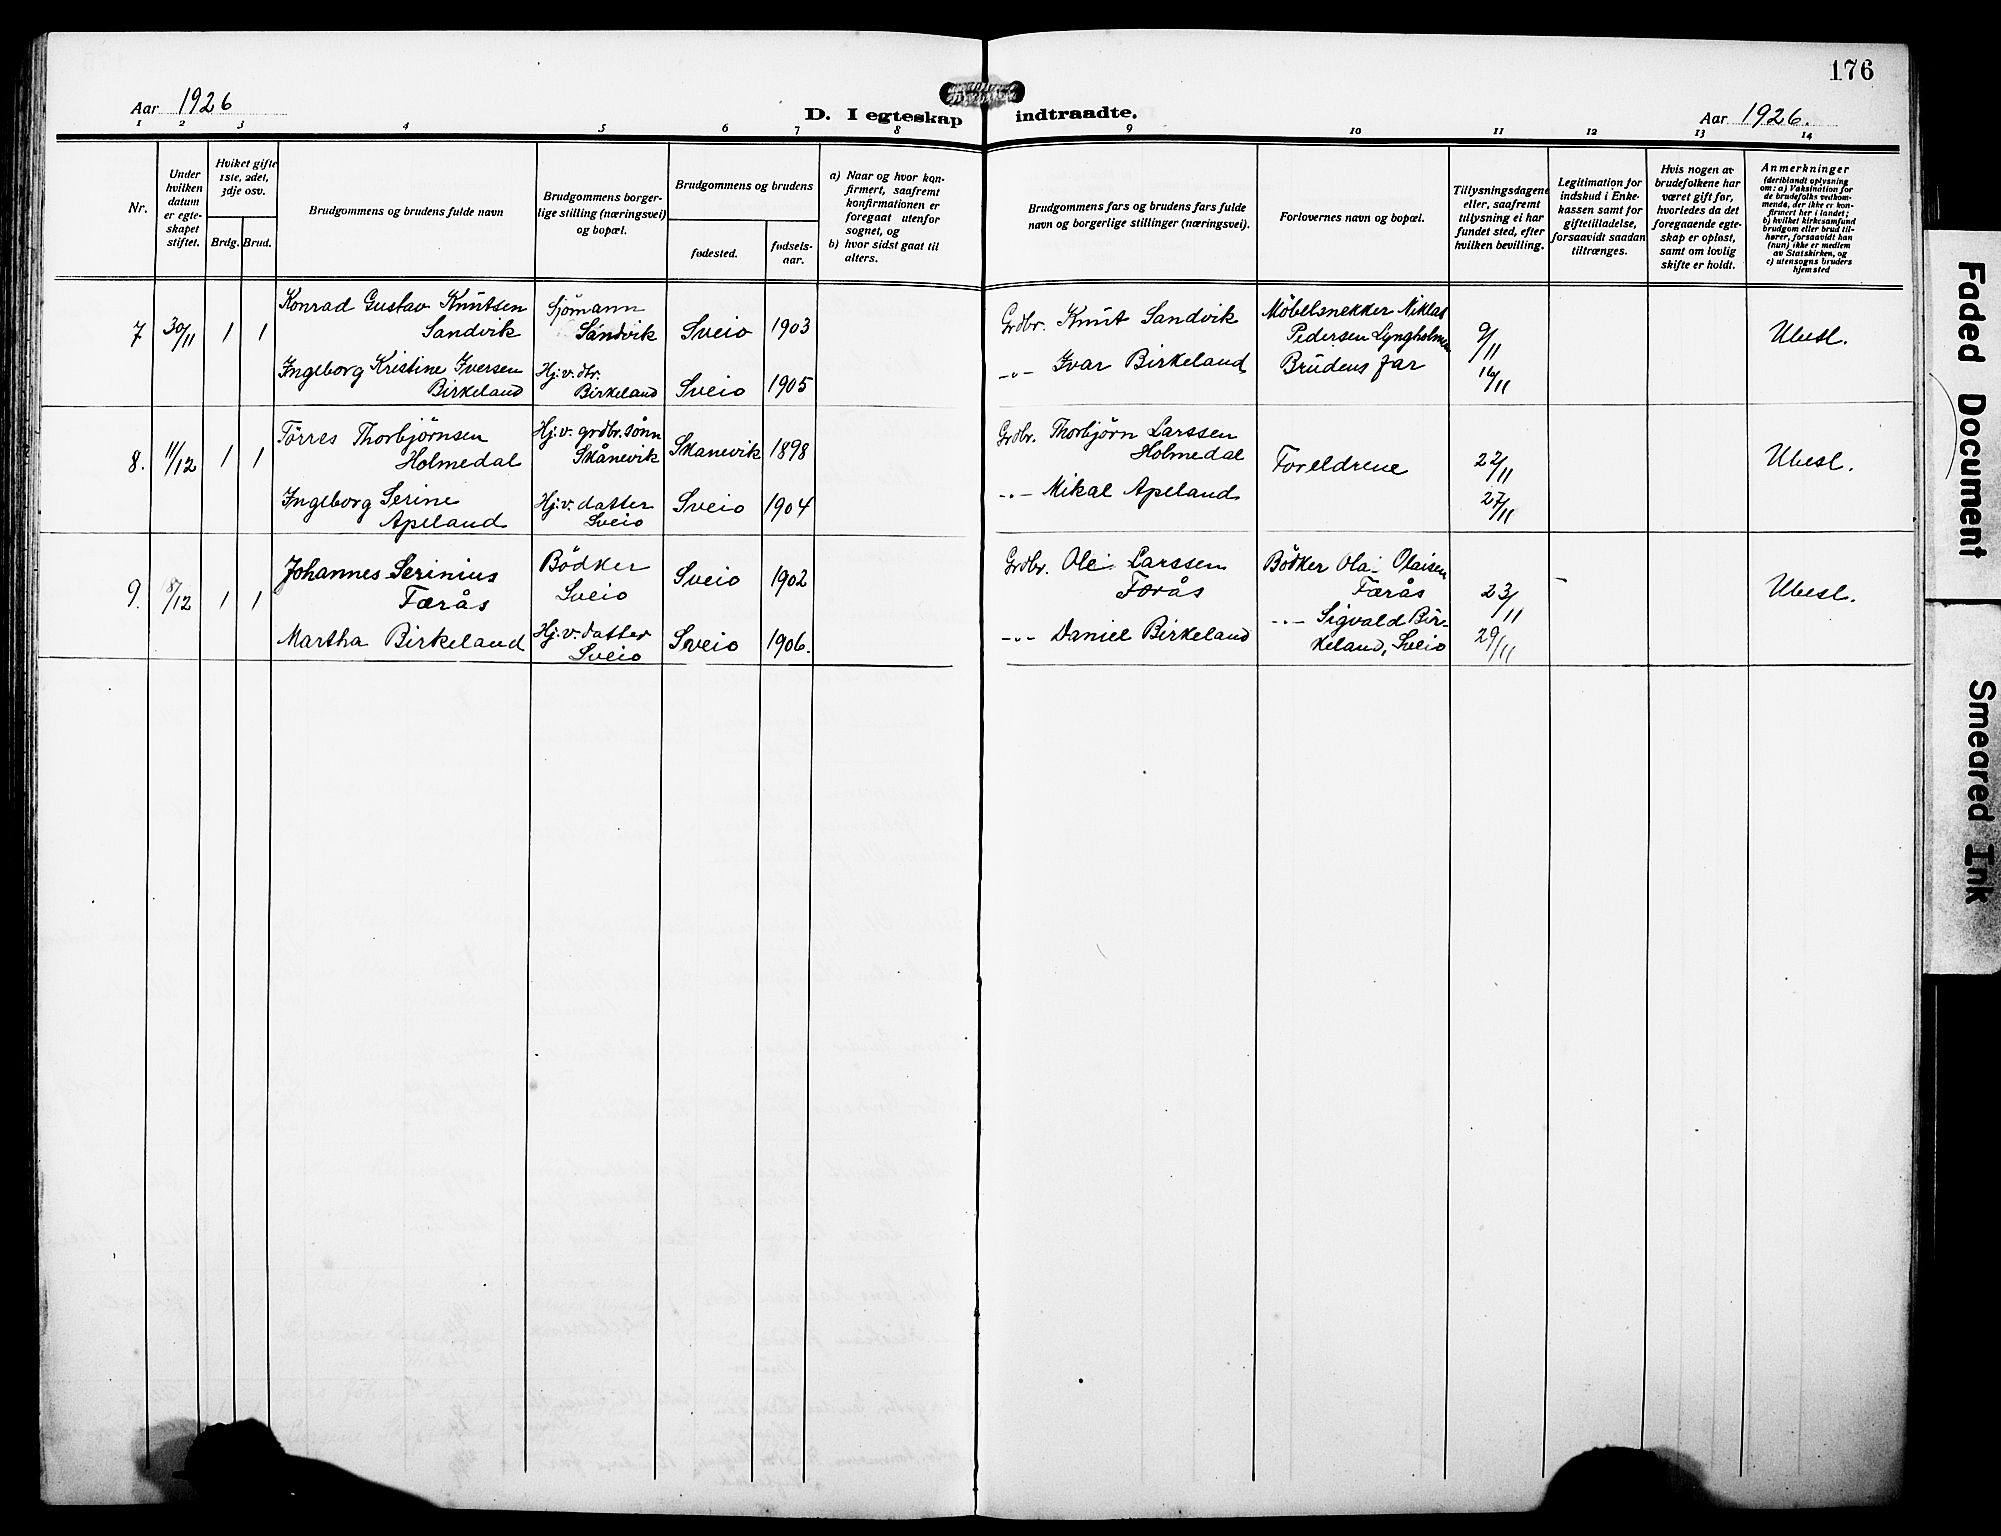 176
Aar 1926
D. I egteskap indtraadte.
Aar 1926.
1 2 3 4 5 6 7 8 9 10 11 12 13 14
Nr.
Under hvilken datum er egteskapet stiftet.
Hvilket gifte 1ste, 2det, 3dje osv.
Brdg. Brud.
Brudgommens og brudens fulde navn
Brudgommens borgerlige stilling (næringsvei) og bopæl.
Brudgommens og brudens
fødested.
fødselsaar.
a) Naar og hvor konfirmert, saafremt konfirmationen er foregaat utenfor sognet, og
b) hvor sidst gaat til alters.
Brudgommens fars og brudens fars fulde navn og borgerlige stillinger (næringsvei).
Forlovernes navn og bopæl.
Tillysningsdagene eller, saafremt tillysning ei har fundet sted, efter hvilken bevilling.
Legitimation for indskud i Enkekassen samt for giftetilladelse, forsaavidt saadan tiltrænges.
Hvis nogen av brudefolkene har været gift før, hvorledes da det foregaaende egteskap er opløst, samt om lovlig skifte er holdt.
Anmerkninger (deriblandt oplysning om: a) Vaksination for de brudefolks vedkommende, der ikke er konfirmert her i landet; b) hvilket kirkesamfund brudgom eller brud tilhører, forsaavidt han (hun) ikke er medlem av Statskirken, og c) utensogns bruders hjemsted
7 30/11 1 1
Konrad Gustav Knutsen
Sandvik
Sjømann
Sandvik
Sveio 1903
Grdbr. Knut Sandvik
Möbelsnekker Niklas
Pedersen Lyngholmen
9/11
Ubesl.
Ingeborg Kristine Iversen
Birkeland
Hj. v. dtr.
Birkeland
Sveio 1905
-"- Ivar Birkeland
Brudens far
16/11
8. 11/12 1 1
Törres Thorbjørnsen
Holmedal
Hj. v. grdbr. sønn
Skånevik
Skånevik 1898
Grdbr. Thorbjørn Larssen
Holmedal
Foreldrene
22/11
Ubesl.
Ingeborg Serine
Apeland
Hj. v. datter
Sveio
Sveio 1904
-"- Mikal Apeland
27/11
9. 18/12 1 1
Johannes Serinius
Færås
Bödker
Sveio
Sveio 1902
Grdbr. Ole Larssen
Færås
Bödker Ola Olaisen
Færås
23/11
Ubesl.
Martha Birkeland
Hj. v. datter
Sveio
Sveio 1906.
-"- Daniel Birkeland
-"- Sigvald Birkeland, Sveio
29/11
Faded Document
Smeared Ink